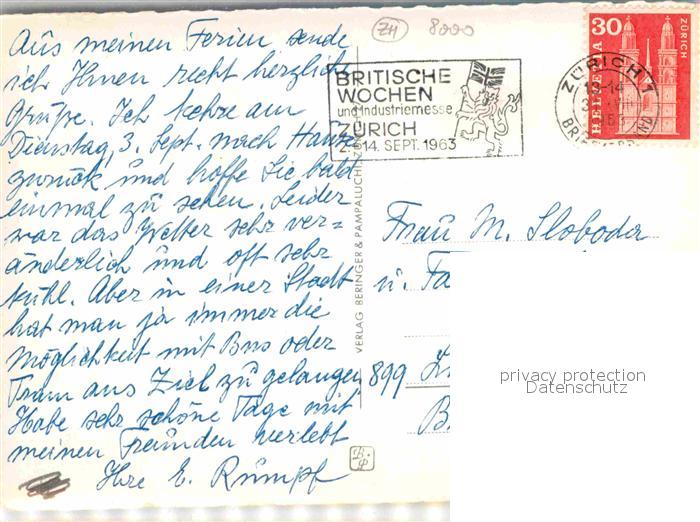 Aus meinen Ferien sende
ich Ihnen recht herzlich
Grüße. Ich kehre am
Dienstag, 3. Sept. nach Hause
zurück und hoffe Sie bald
einmal zu sehen. Leider
war das Wetter sehr ver=
änderlich und oft sehr
kühl. Aber in einer Stadt
hat man ja immer die
Möglichkeit mit Bus oder
Tram ans Ziel zu gelangen
Habe sehr schöne Tage mit
meinen Freunden verlebt
Ihre E. Rumpf
ZH 8000
BRITISCHE
WOCHEN
und Industriemesse
ZÜRICH
14. SEPT. 1963
ZÜRICH 1
30
HELVETIA
ZÜRICH
VERLAG BERINGER & PAMPALUCHI, ZÜ
Frau M. Sloboda
u. Fa
899
B
privacy protection
Datenschutz